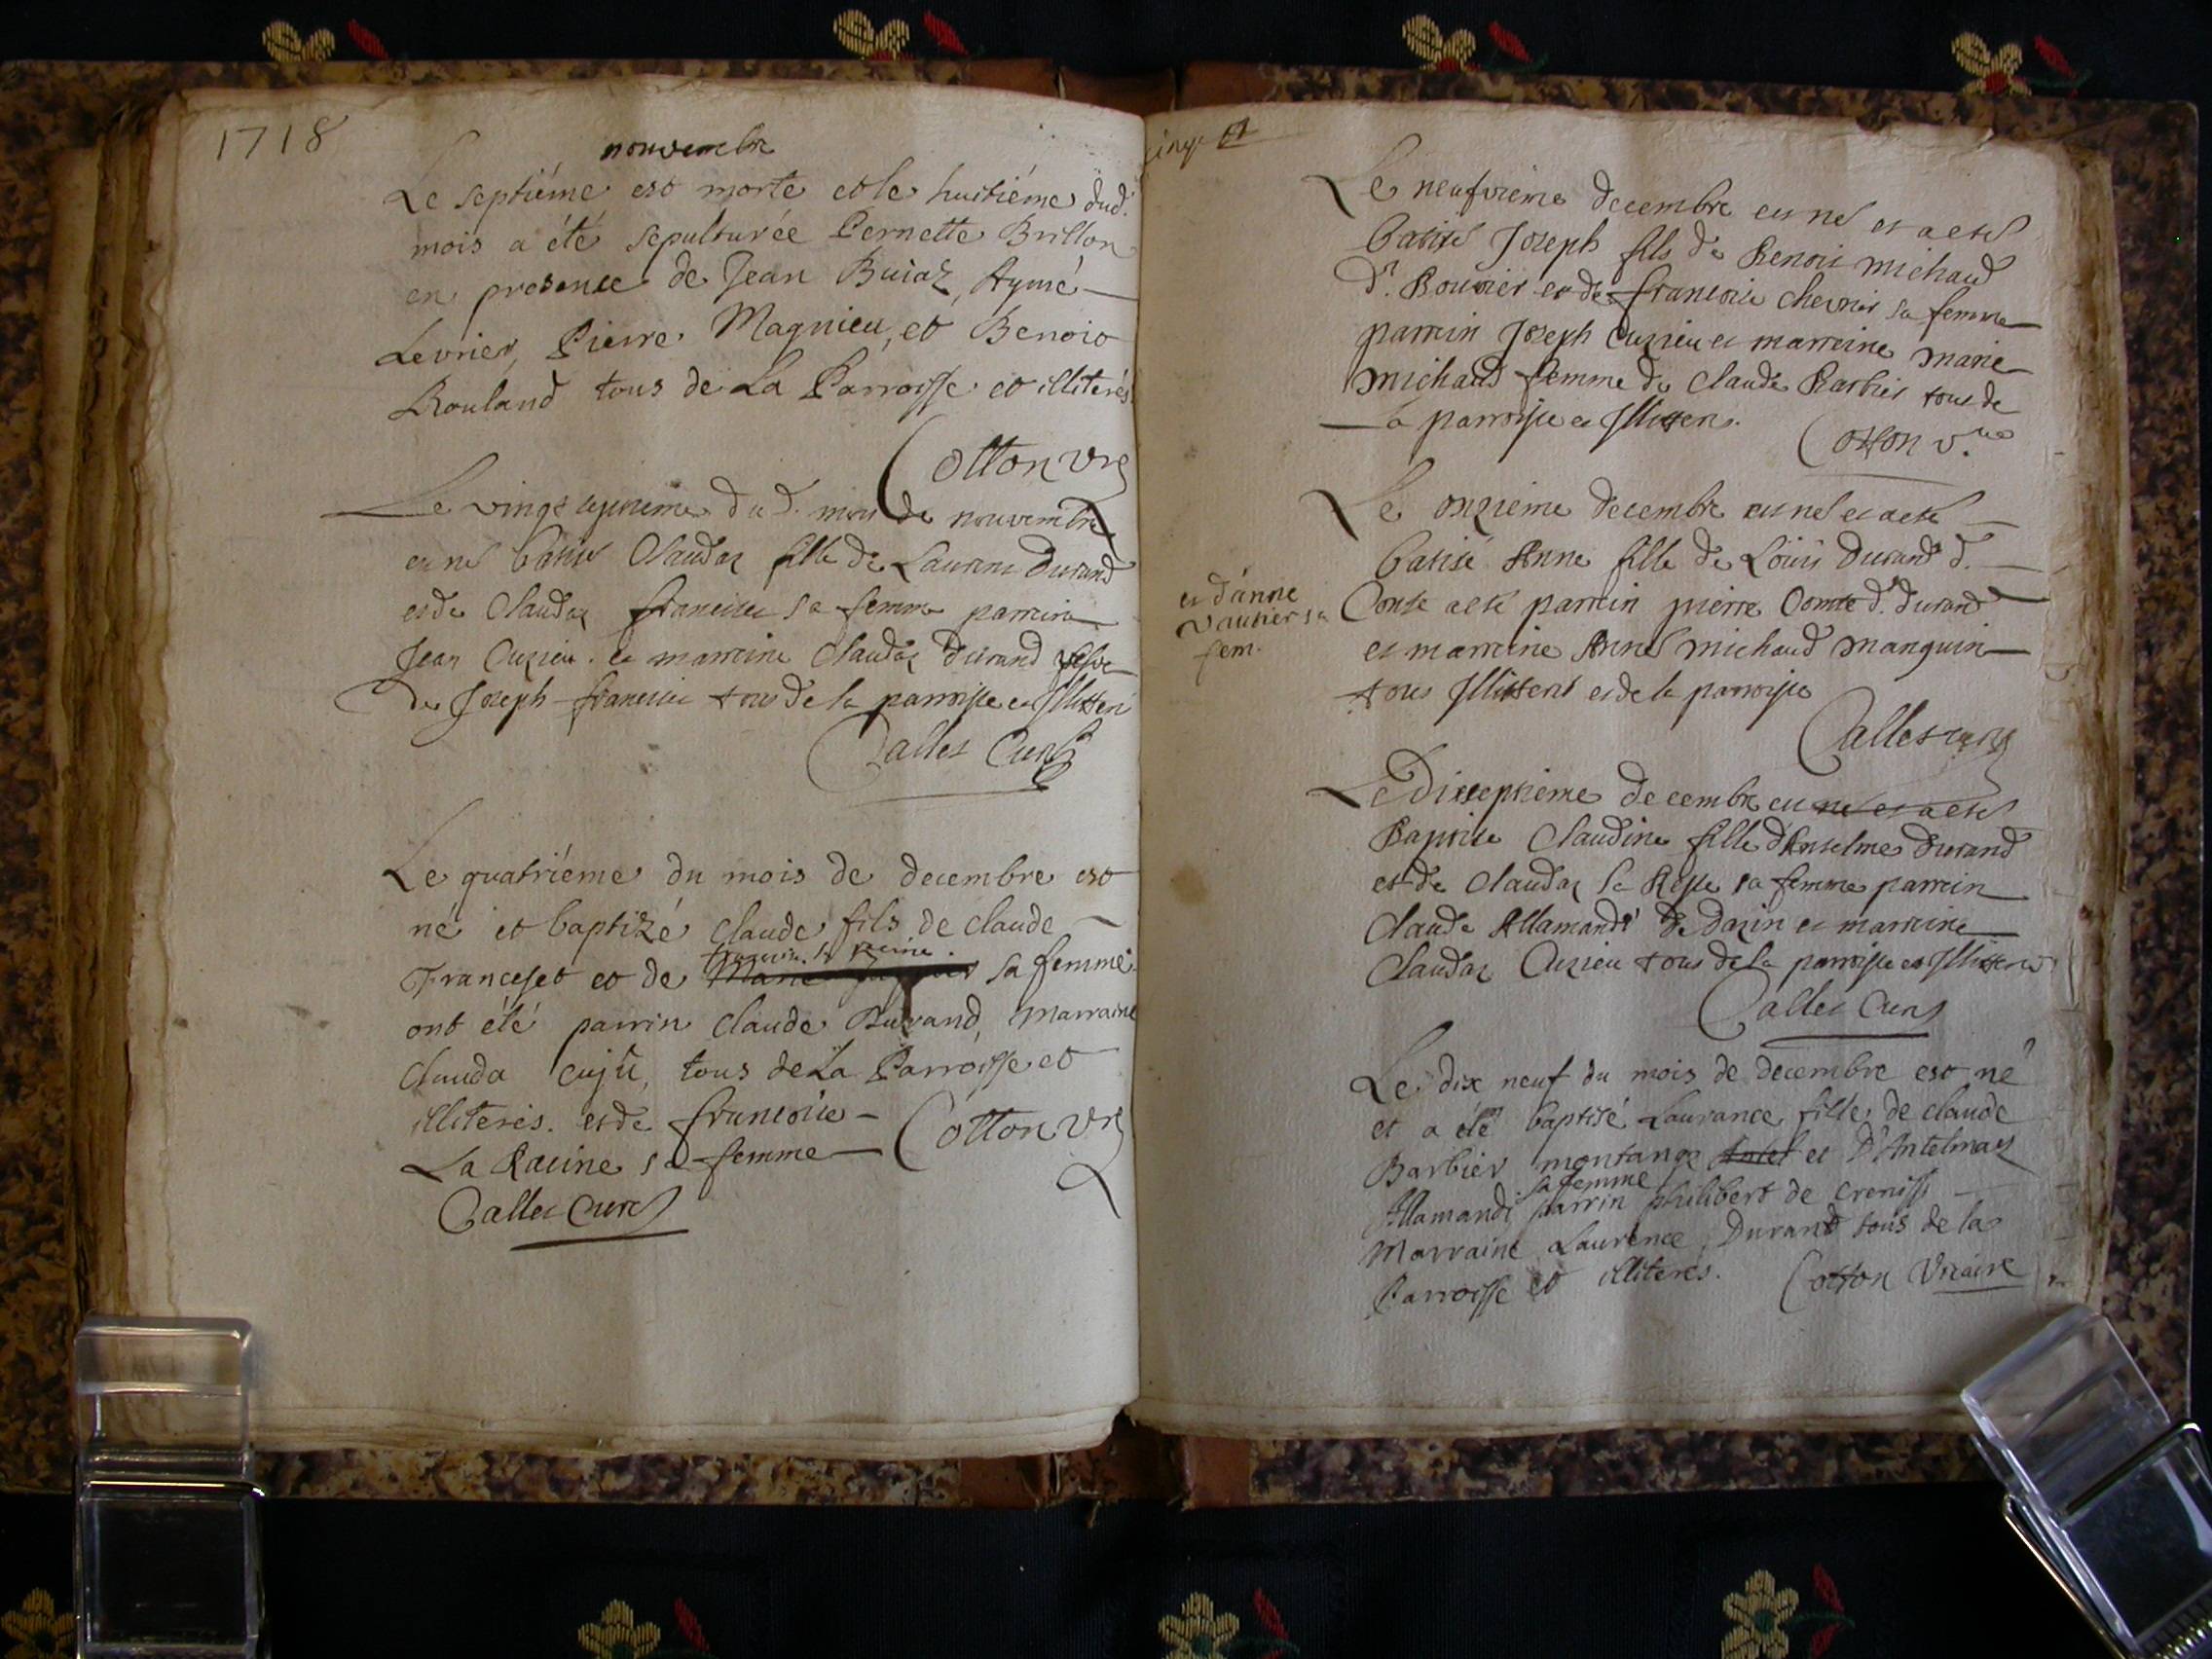 1718
nouvembre
Le septiéme est morte et le huitiéme dud.
mois a été sepulturée Pernette Brillon
en presence de Jean Buiaz, Aymé
Levrier, Pierre Magnieu, et Benoit
Rouland tous de La Parroisse et illiterés
Cotton vre
Le vingt septieme du d. mois de nouvembre
est né batisé Claudaz fille de Laurent Durand
et de Claudaz francisse sa femme parrein
Jean Cuzieu. et marreine Claudaz durand
de Joseph francisse tous de la parroisse et Illitteré
Calles Curé
Le quatriéme du mois de decembre est
né et baptizé claude fils de claude
francoise la racine.
Franceset et de Marie sa femme
ont été parrin claude Durand, marraine
clauda cuju, tous de La Parroisse et
illiterés. et de francoise
La Racine sa femme Cotton vre
Calles Curé
Le neufvieme decembre est né et a eté
batisé Joseph fils de Benoit michaud
dt. Bouvier et de francoise chevrier sa femme
parrein Joseph Cuzieu et marreine marie
michaud femme de Claude Barbier tous de
la parroisse et Illitteré.
Cotton v.re
Le onzieme decembre est né et a eté
batisé Anne fille de Loüis Durand d.
et d'anne
vautier sa
fem.
Conte a eté parrein pierre Comte d. durand
et marreine Anne michaud manguin
tous Illitterés et de la parroisse
Calles curé
Le Disseptieme decembre est né et a eté
Baptisé Claudine fille d'Anselme Durand
et de Claudaz sa femme parrein
Claude Allamand de dazin et marreine
Claudaz Cuzieu tous de la parroisse et Illitterés
Calles Curé
Le dix neuf du mois de decembre est né
et a été baptisé Laurance fille de claude
Barbier montange Antel et D'Antelmaz
sa femme
Allamand parrin philibert de crenisse
Marraine Laurence Durand tous de la
Parroisse et illiterés. Cotton Vicaire